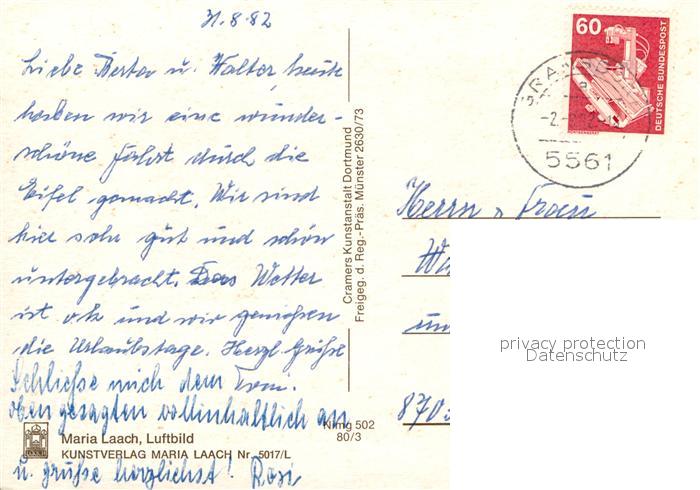 31.8.82
Liebe Berta u. Walter, heute
haben wir eine wunder-
schöne Fahrt durch die
Eifel gemacht. Wir sind
hier sehr gut und schön
untergebracht. Das Wetter
ist o.k. und wir genießen
die Urlaubstage. Herzl. Grüße
Toni.
Schließe mich dem
oben gesagten vollinhaltlich an
u. grüße herzlichst! Rosi
Maria Laach, Luftbild
KUNSTVERLAG MARIA LAACH Nr. 5017/L
502
80/3
Cramers Kunstanstalt Dortmund
Freigeg. d. Reg.-Präs. Münster 2630/73
60
DEUTSCHE BUNDESPOST
5561
Herrn u. Frau
Wa
und
870
privacy protection
Datenschutz